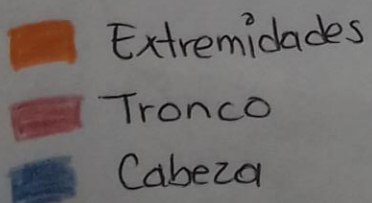 Extremidades
Tronco
Cabeza